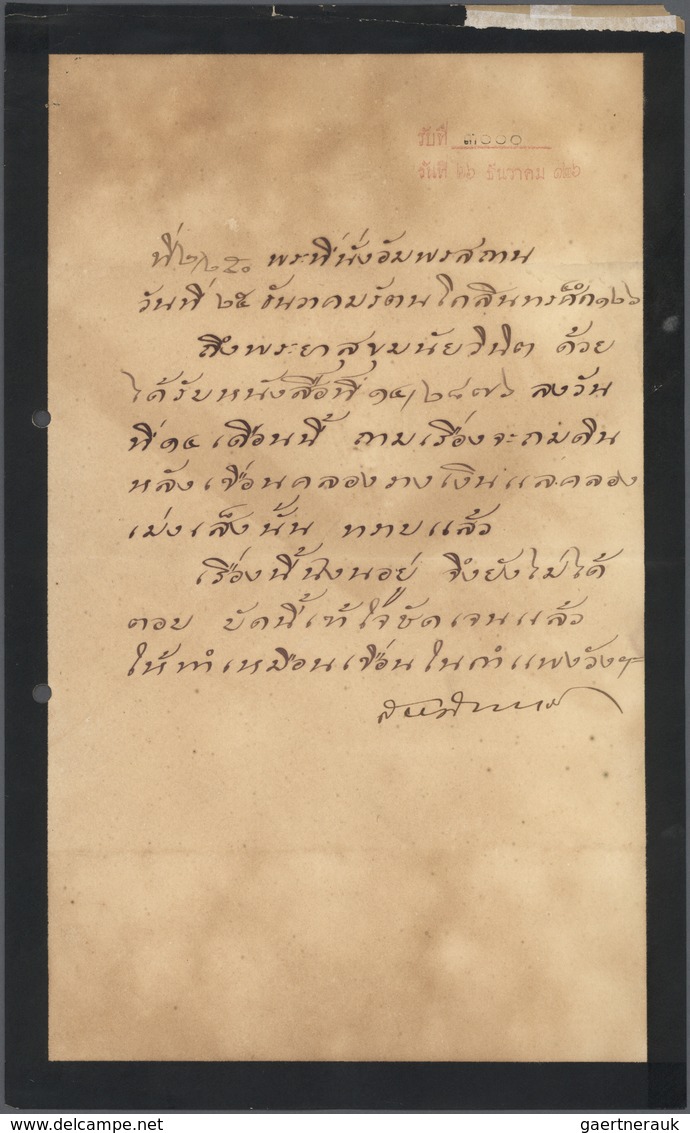 รับที่ ๓๐๐๐
วันที่ ๒๖ ธันวาคม ๑๒๖
ที่ พระที่นั่งอัมพรสถาน
วันที่ ๒๕ ธันวาคมรัตนโกสินทรศก๑๒๖
ถึงพระยาสุขุมนัยวินิต ด้วย
ได้รับหนังสือที่ ๑๔/๒๘๗๖ ลงวัน
ที่ ๑๔ เดือนนี้ ถามเรื่องจะถมดิน
หลังเขื่อนคลองวางเงินแลคลอง
เม่งเส็งนั้น ทราบแล้ว
เรื่องนี้ อยู่ จึงยังไม่ได้
ตอบ บัดนี้เข้าใจชัดเจนแล้ว
ให้ทำเหมือนเขื่อนในกำแพงวังฯ
gaertnerauk
www.delcampe.net